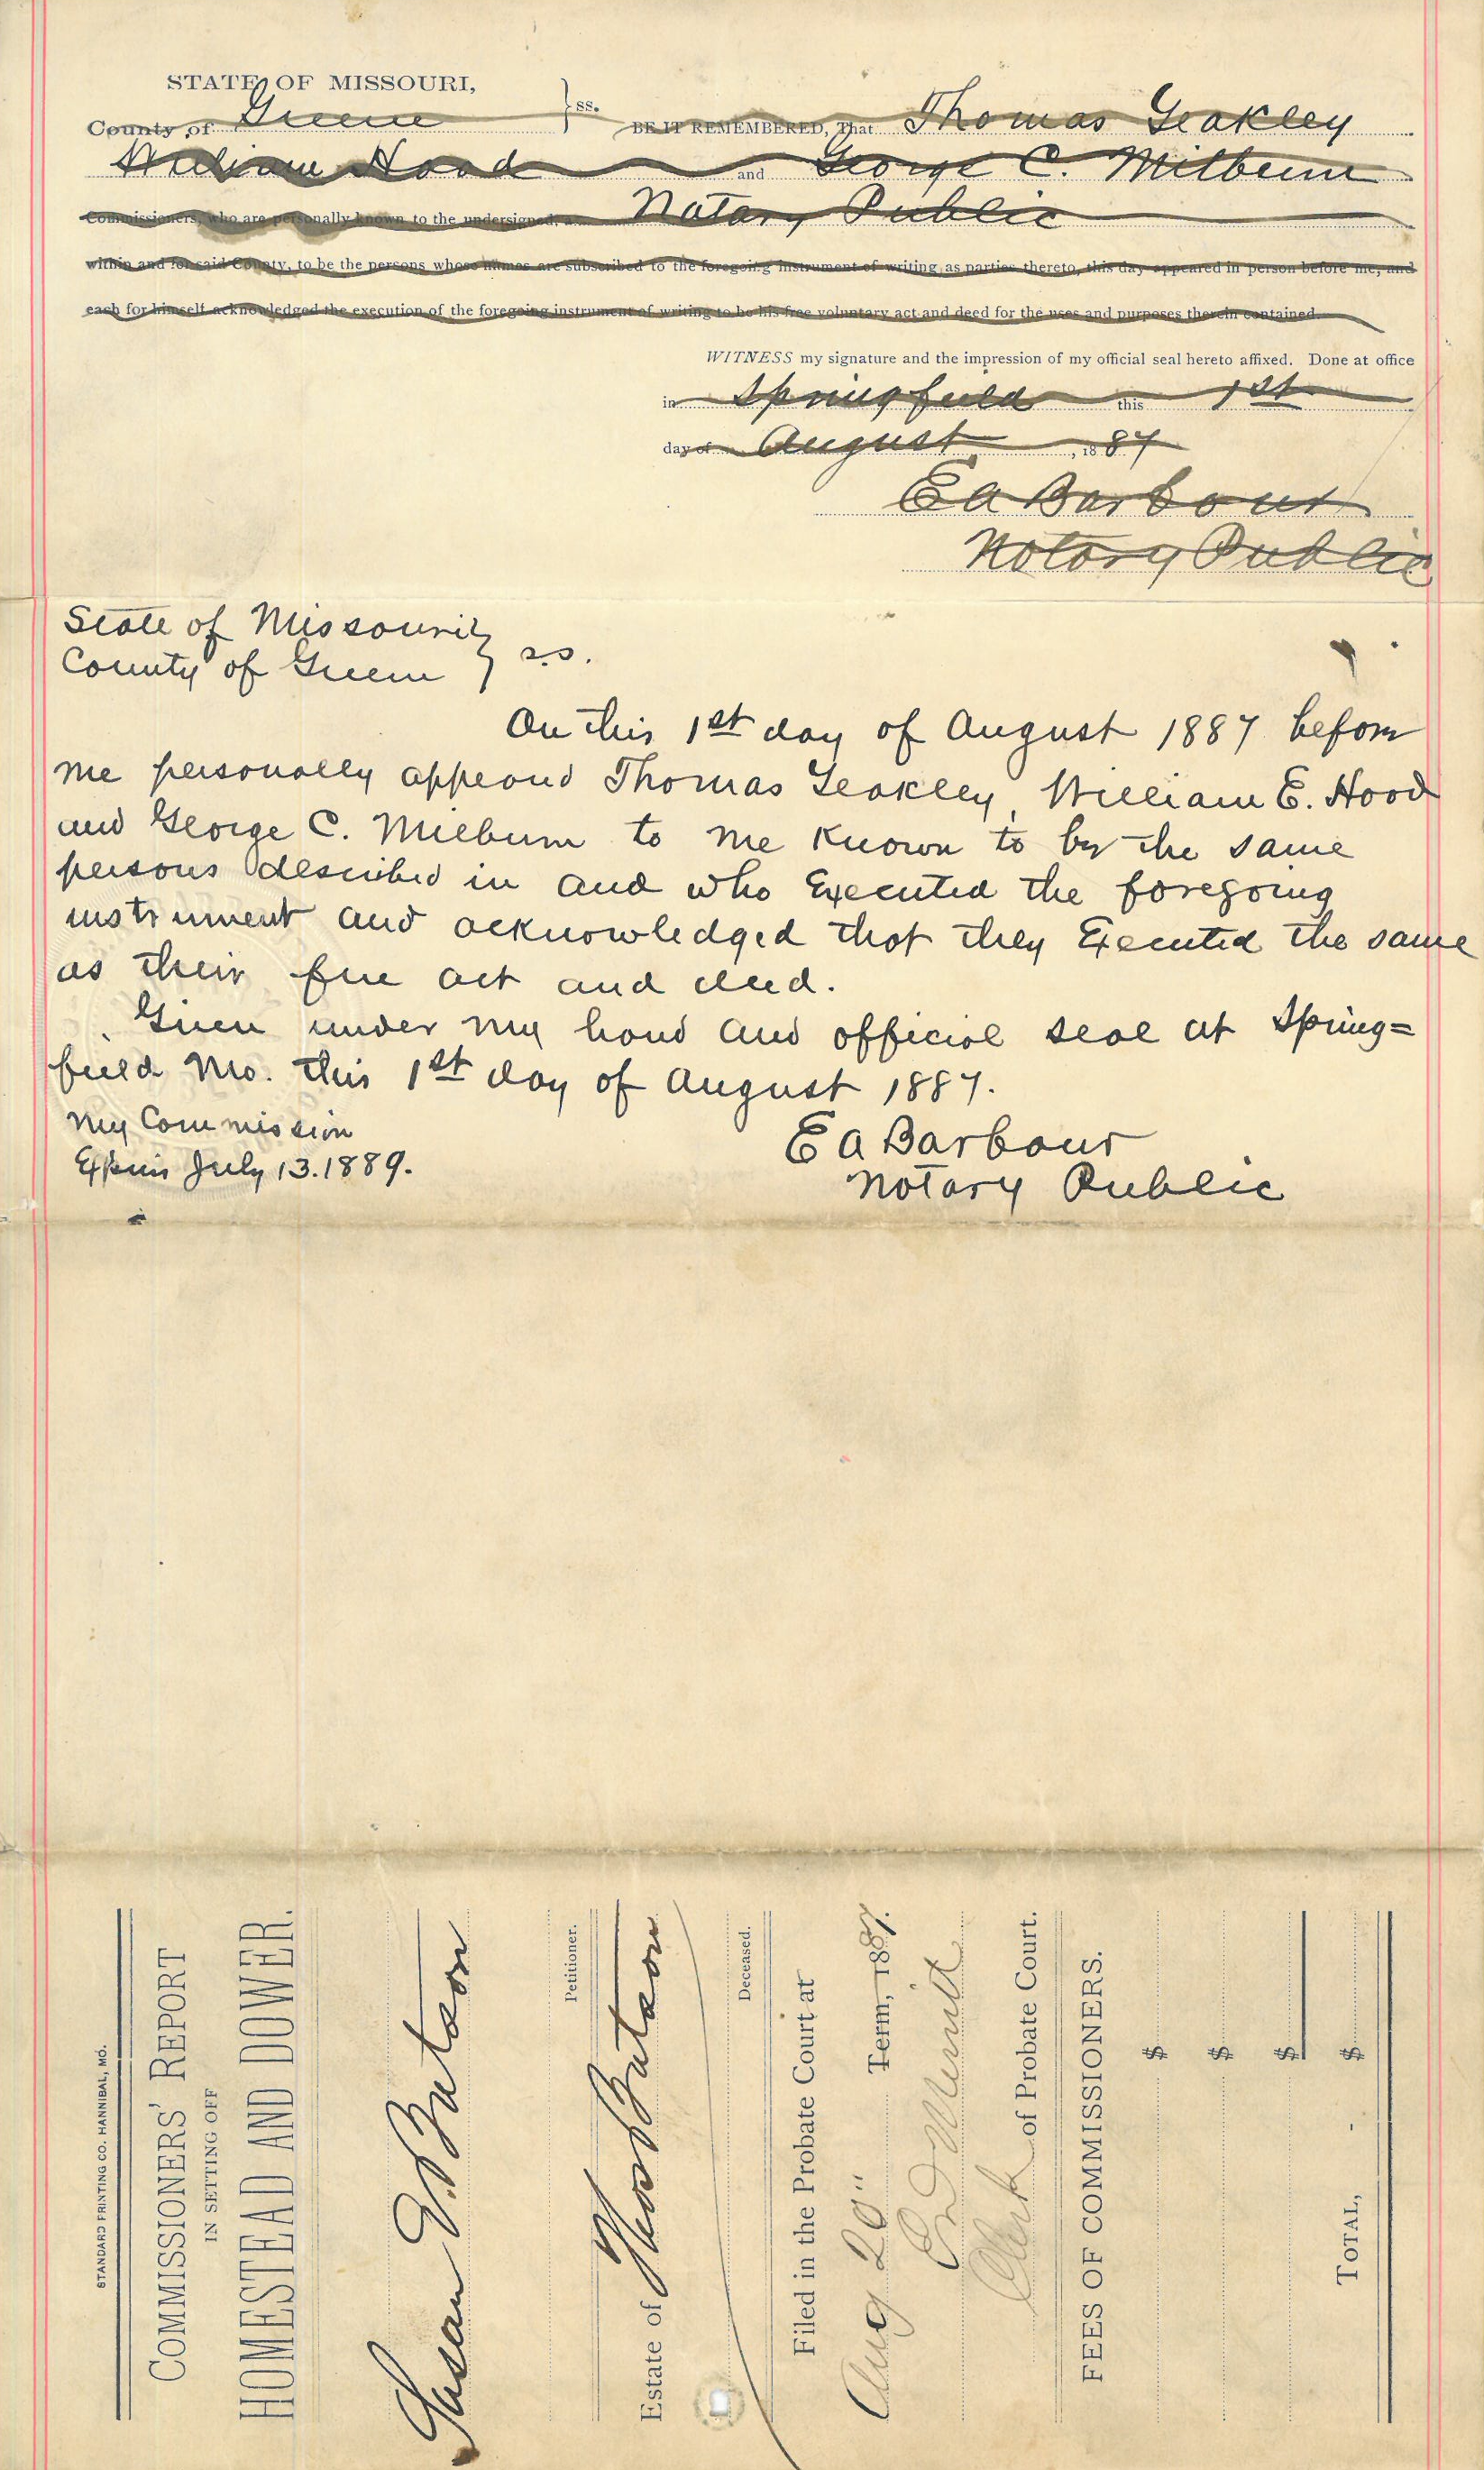 STATE OF MISSOURI,
County of Greene } ss. BE IT REMEMBERED, That Thomas Yeakley
William Hood and George C. Milburn
Commissioners, who are personally known to the undersigned, a Notary Public
within and for said County, to be the persons whose names are subscribed to the foregoing instrument of writing, as parties thereto, this day appeared in person before me, and
each for himself acknowledged the execution of the foregoing instrument of writing to be his free voluntary act and deed for the uses and purposes therein contained.
WITNESS my signature and the impression of my official seal hereto affixed. Done at office
in Springfield this 1st
day of August, 1887
E A Barbour
Notary Public
State of Missouri }
County of Greene } s.s.
On this 1st day of August 1887 before
me personally appeared Thomas Yeakley, William E. Hood
and George C. Milburn to me known to be the same
persons described in and who Executed the foregoing
instrument and acknowledged that they Executed the same
as their free act and deed.
Given under my hand and official seal at Spring=
field Mo. this 1st day of August 1887.
My Commission
Expires July 13. 1889.
E A Barbour
Notary Public
STANDARD PRINTING CO. HANNIBAL, MO.
COMMISSIONERS' REPORT
IN SETTING OFF
HOMESTEAD AND DOWER.
Susan E. Bateson
Petitioner.
Estate of Thos Bateson
Deceased.
Filed in the Probate Court at
Aug 20" Term, 1887.
Merritt
Clerk of Probate Court.
FEES OF COMMISSIONERS.
$
$
$
TOTAL, $